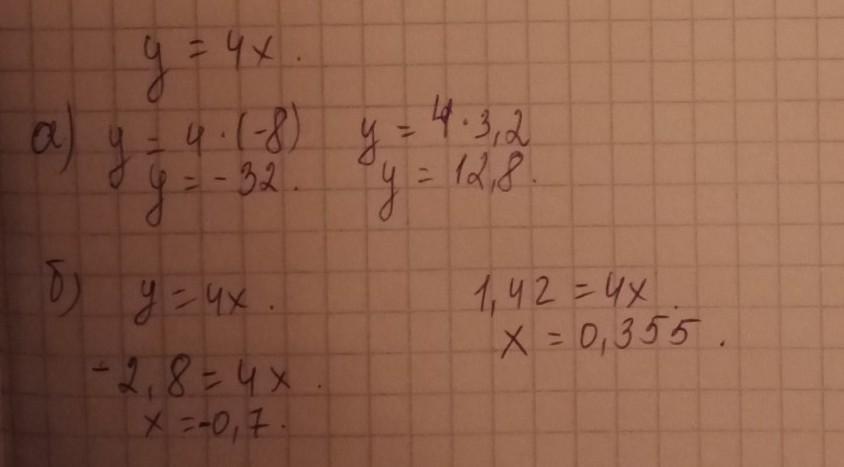 y = 4x.
а) y = 4·(-8) y = 4·3,2
y = -32. y = 12,8.
б) y = 4x. 1,42 = 4x.
x = 0,355.
-2,8 = 4x.
x = -0,7.